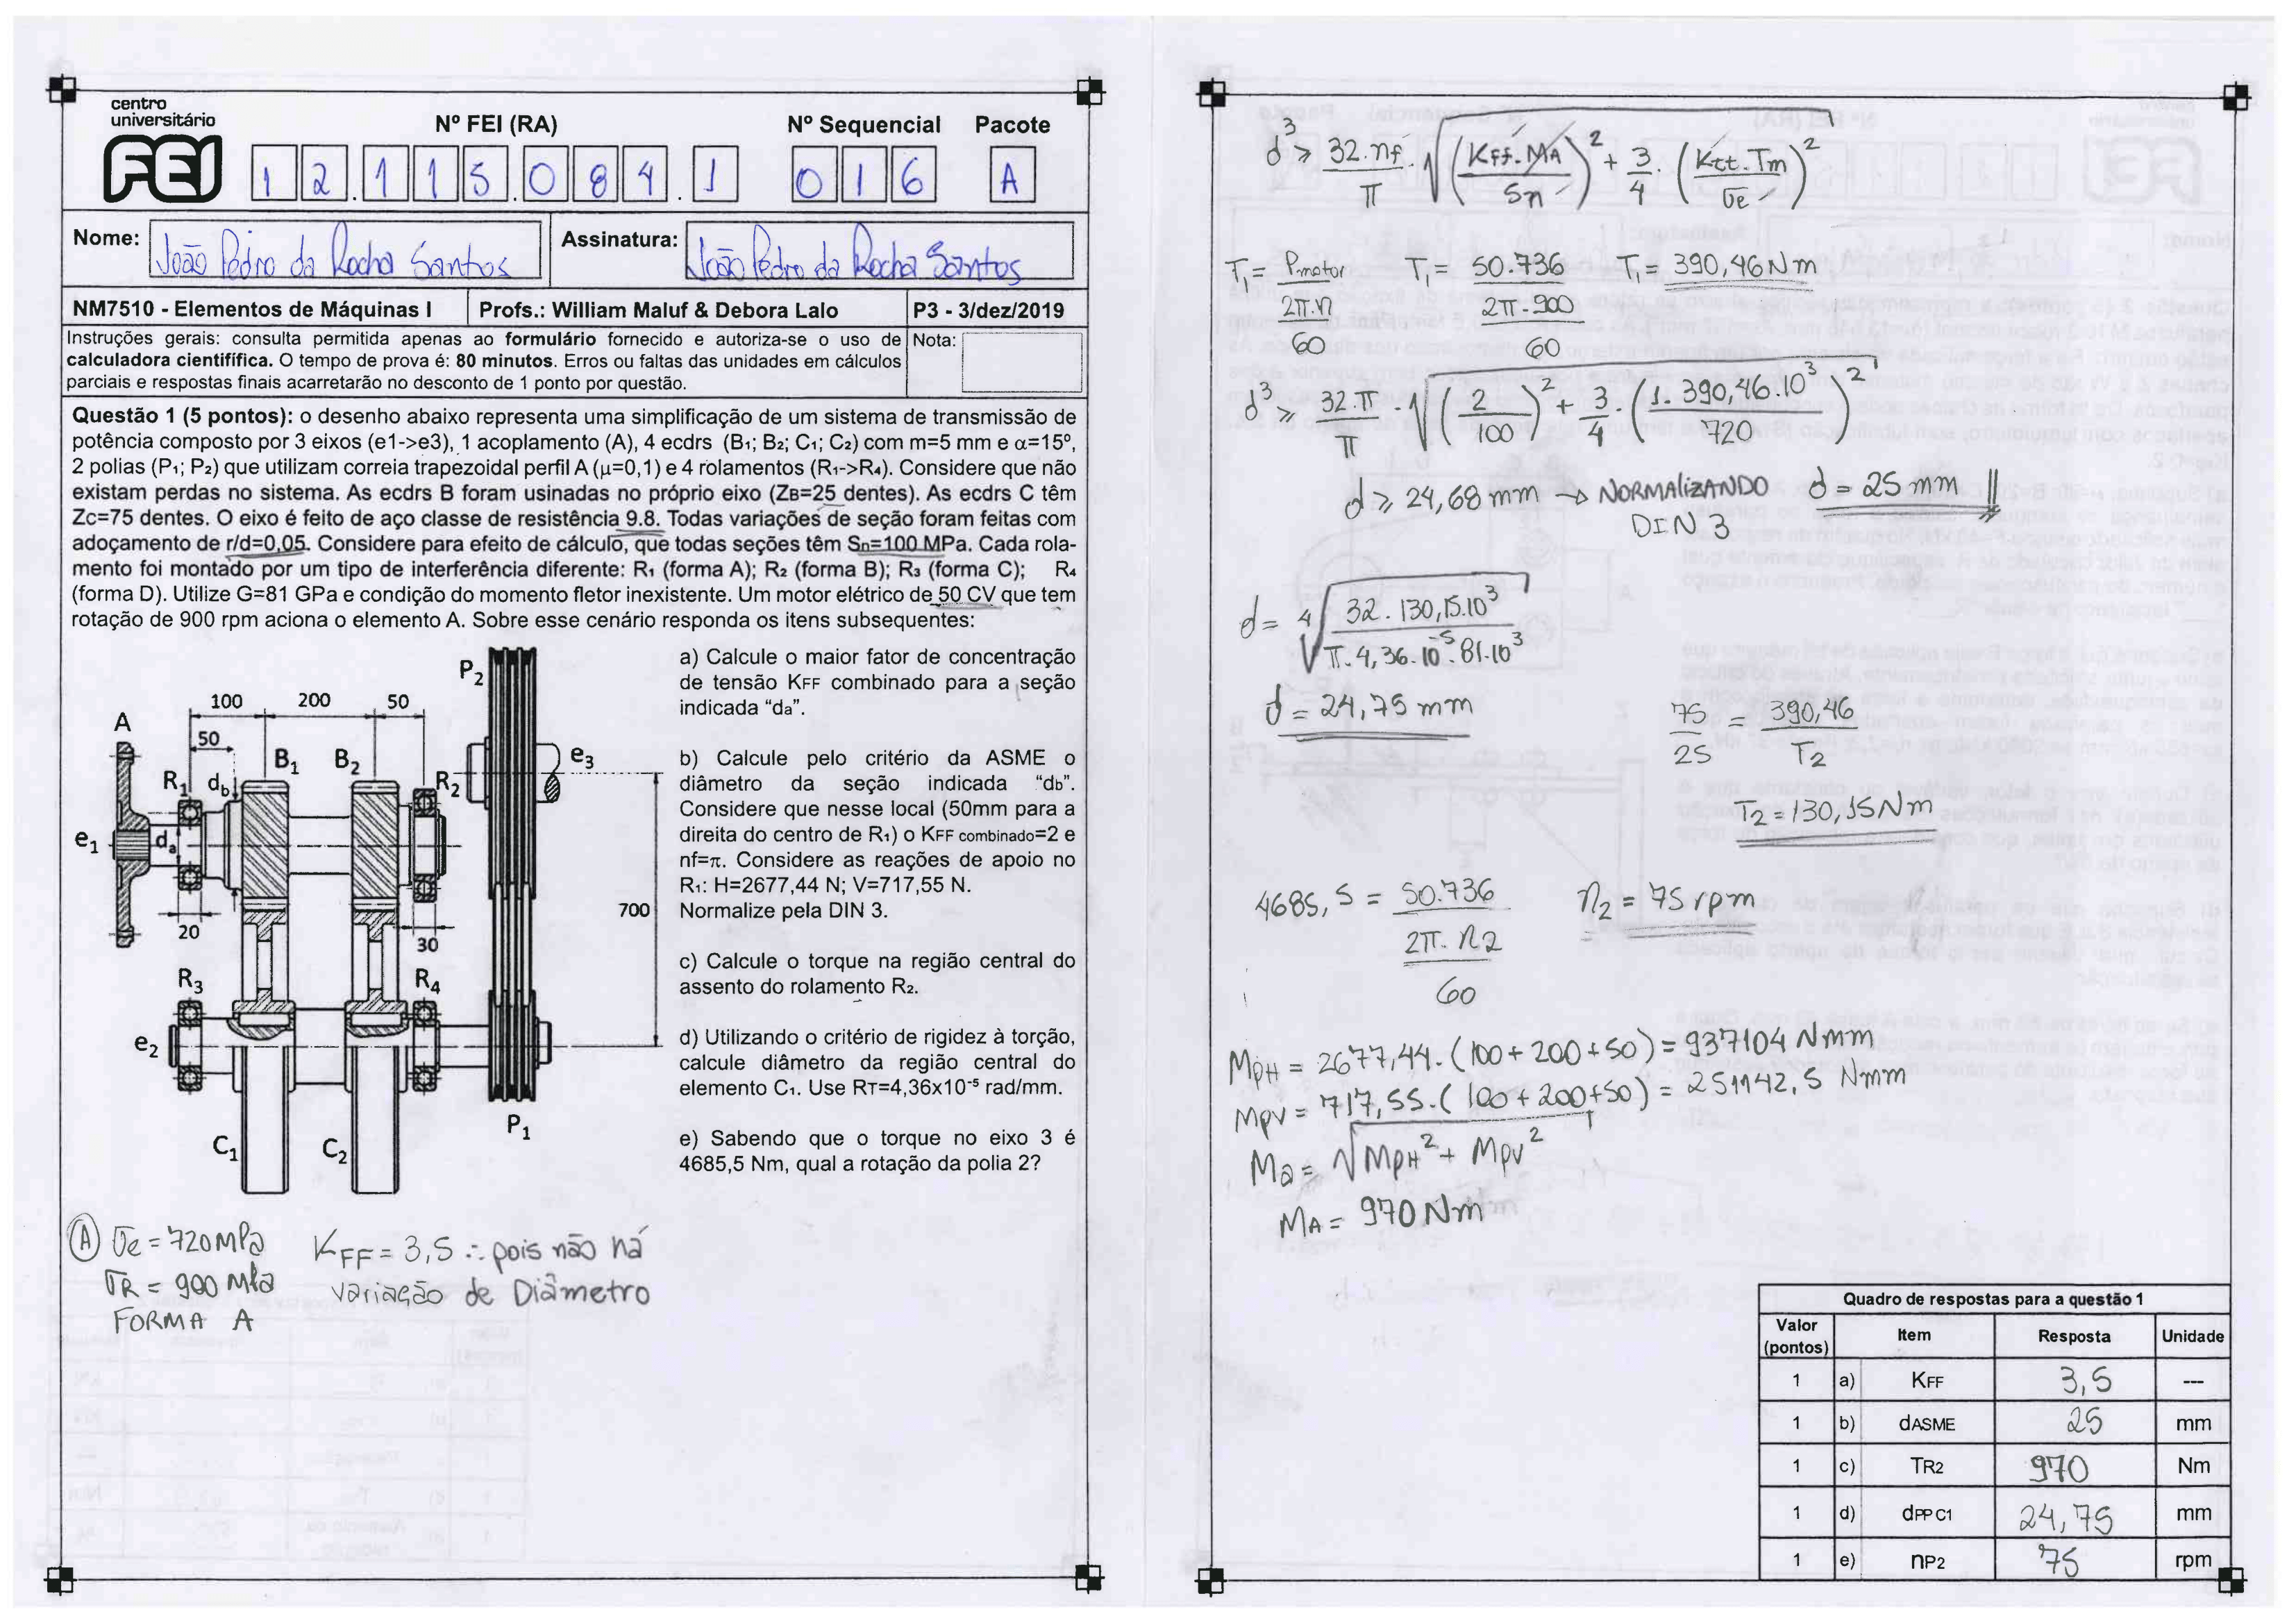 centro
universitário
FEI
Nº FEI (RA)
Nº Sequencial
Pacote
12.115.084.1
016
A
Nome: João Pedro da Rocha Santos
Assinatura: João Pedro da Rocha Santos
NM7510 - Elementos de Máquinas I
Profs.: William Maluf & Debora Lalo
P3 - 3/dez/2019
Instruções gerais: consulta permitida apenas ao formulário fornecido e autoriza-se o uso de
calculadora cientifífica. O tempo de prova é: 80 minutos. Erros ou faltas das unidades em cálculos
parciais e respostas finais acarretarão no desconto de 1 ponto por questão.
Nota:
Questão 1 (5 pontos): o desenho abaixo representa uma simplificação de um sistema de transmissão de
potência composto por 3 eixos (e1->e3), 1 acoplamento (A), 4 ecdrs (B1; B2; C1; C2) com m=5 mm e α=15º,
2 polias (P1; P2) que utilizam correia trapezoidal perfil A (µ=0,1) e 4 rolamentos (R1->R4). Considere que não
existam perdas no sistema. As ecdrs B foram usinadas no próprio eixo (ZB=25 dentes). As ecdrs C têm
Zc=75 dentes. O eixo é feito de aço classe de resistência 9.8. Todas variações de seção foram feitas com
adoçamento de r/d=0,05. Considere para efeito de cálculo, que todas seções têm Sn=100 MPa. Cada rola-
mento foi montado por um tipo de interferência diferente: R1 (forma A); R2 (forma B); R3 (forma C); R4
(forma D). Utilize G=81 GPa e condição do momento fletor inexistente. Um motor elétrico de 50 CV que tem
rotação de 900 rpm aciona o elemento A. Sobre esse cenário responda os itens subsequentes:
100
200
50
50
P2
A
B1
B2
R1
db
R2
e3
e1
da
20
30
700
R3
R4
e2
C1
C2
P1
a) Calcule o maior fator de concentração
de tensão KFF combinado para a seção
indicada “da”.
b) Calcule pelo critério da ASME o
diâmetro da seção indicada “db”.
Considere que nesse local (50mm para a
direita do centro de R1) o KFF combinado=2 e
nf=π. Considere as reações de apoio no
R1: H=2677,44 N; V=717,55 N.
Normalize pela DIN 3.
c) Calcule o torque na região central do
assento do rolamento R2.
d) Utilizando o critério de rigidez à torção,
calcule diâmetro da região central do
elemento C1. Use RT=4,36x10-5 rad/mm.
e) Sabendo que o torque no eixo 3 é
4685,5 Nm, qual a rotação da polia 2?
(A) σe = 720MPa
σR = 900 MPa
FORMA A
KFF = 3,5 ∴ pois não há
variação de Diâmetro
d³ ≥ 32.nf/π . √((Kff.MA/Sn)² + 3/4 . (Ktt.Tm/σe)²)
T1 = Pmotor/(2π.n/60)
T1 = 50.736/(2π.900/60)
T1 = 390,46 Nm
d³ ≥ 32.π/π . √((2/100)² + 3/4 . (1.390,46.10³/720)²)
d ≥ 24,68 mm → NORMALIZANDO
DIN 3
d = 25 mm
d = ⁴√(32.130,15.10³/(π.4,36.10⁻⁵.81.10³))
d = 24,75 mm
75/25 = 390,46/T2
T2 = 130,15Nm
4685,5 = 50.736/(2π.n2/60)
n2 = 75 rpm
MpH = 2677,44.(100+200+50) = 937104 Nmm
Mpv = 717,55.(100+200+50) = 251142,5 Nmm
Ma = √(MpH² + Mpv²)
MA = 970 Nm
Quadro de respostas para a questão 1
Valor (pontos)
Item
Resposta
Unidade
1 a) KFF 3,5 ---
1 b) dASME 25 mm
1 c) TR2 970 Nm
1 d) dPP C1 24,75 mm
1 e) nP2 75 rpm